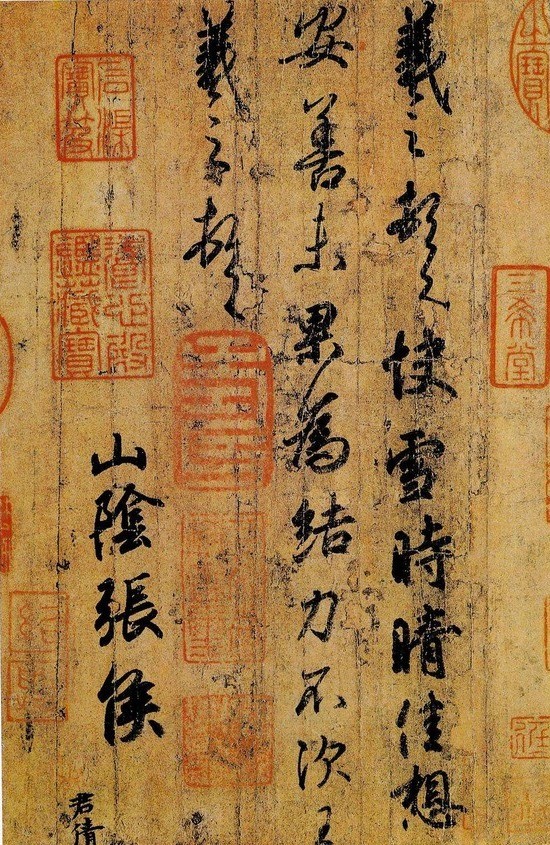 之寶
三希堂
羲之頓首快雪時晴佳想
安善未果為結力不次王
羲之頓首
山陰張侯
君倩
石渠寶笈
養心殿鑑藏寶